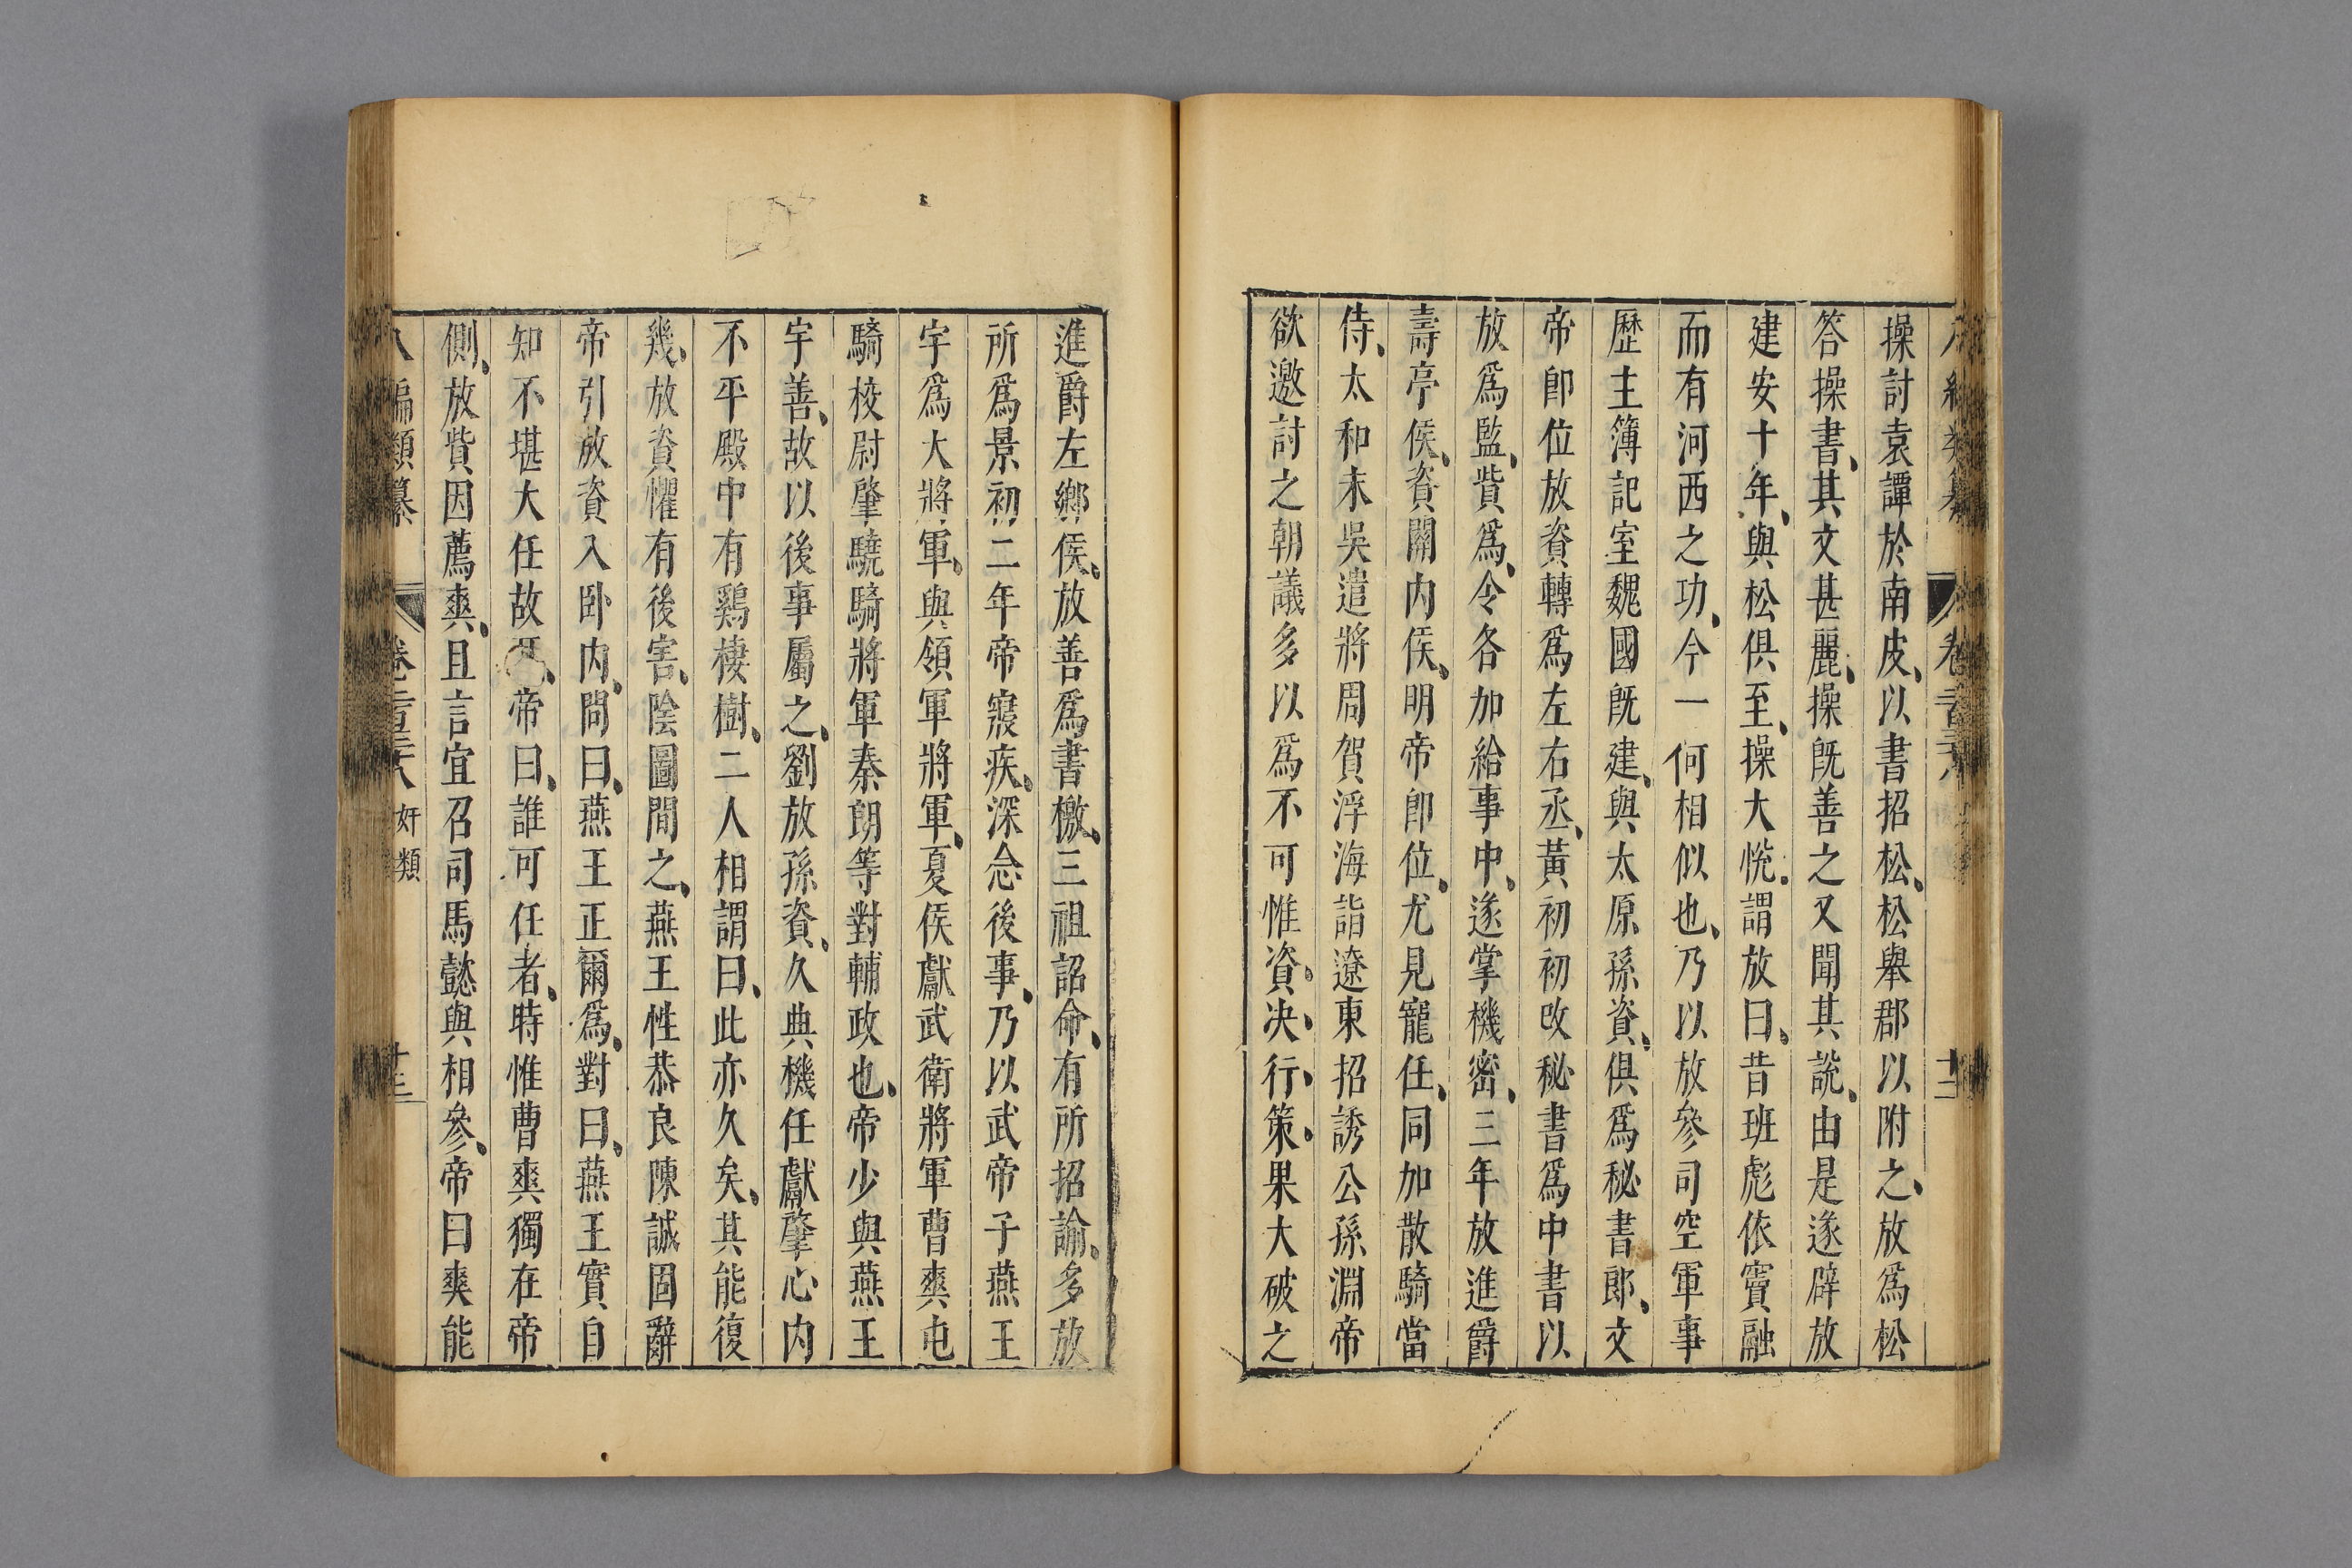 操討袁譚於南皮、以書招松、松舉郡以附之、放爲松
答操書、其文甚麗、操旣善之又聞其說、由是遂辟放
建安十年、與松俱至、操大悅、謂放曰、昔班彪依竇融
而有河西之功、今一何相似也、乃以放參司空軍事
歷主簿記室魏國旣建、與太原孫資、俱爲秘書郎、文
帝卽位放資轉爲左右丞、黃初初改秘書爲中書以
放爲監、貲爲、令各加給事中、遂掌機密、三年放進爵
壽亭侯、資關内侯、明帝卽位、尤見寵任、同加散騎當
侍、太和末吳遣將周賀浮海詣遼東招誘公孫淵帝
欲邀討之朝議多以爲不可惟資、決、行、策、果大破之
進爵左鄉侯、放善爲書檄、三祖詔命、有所招諭、多放
所爲景初二年帝寢疾、深念後事、乃以武帝子燕王
宇爲大將軍、與領軍將軍、夏侯獻武衛將軍曹爽屯
騎校尉肇驍騎將軍秦朗等對輔政也、帝少與燕王
宇善、故以後事屬之、劉放孫資、久典機任獻肇心内
不平殿中有鷄棲樹、二人相謂曰、此亦久矣、其能復
幾、放資懼有後害、陰圖間之、燕王性恭良陳誠固辭
帝引放資入卧内、問曰、燕王正爾爲、對曰、燕王實自
知不堪大任故、帝曰、誰可任者、時惟曹爽獨在帝
側、放貲因薦爽、且言宜召司馬懿與相參、帝曰爽能
八編類纂 卷二百三十八 奸類 十三